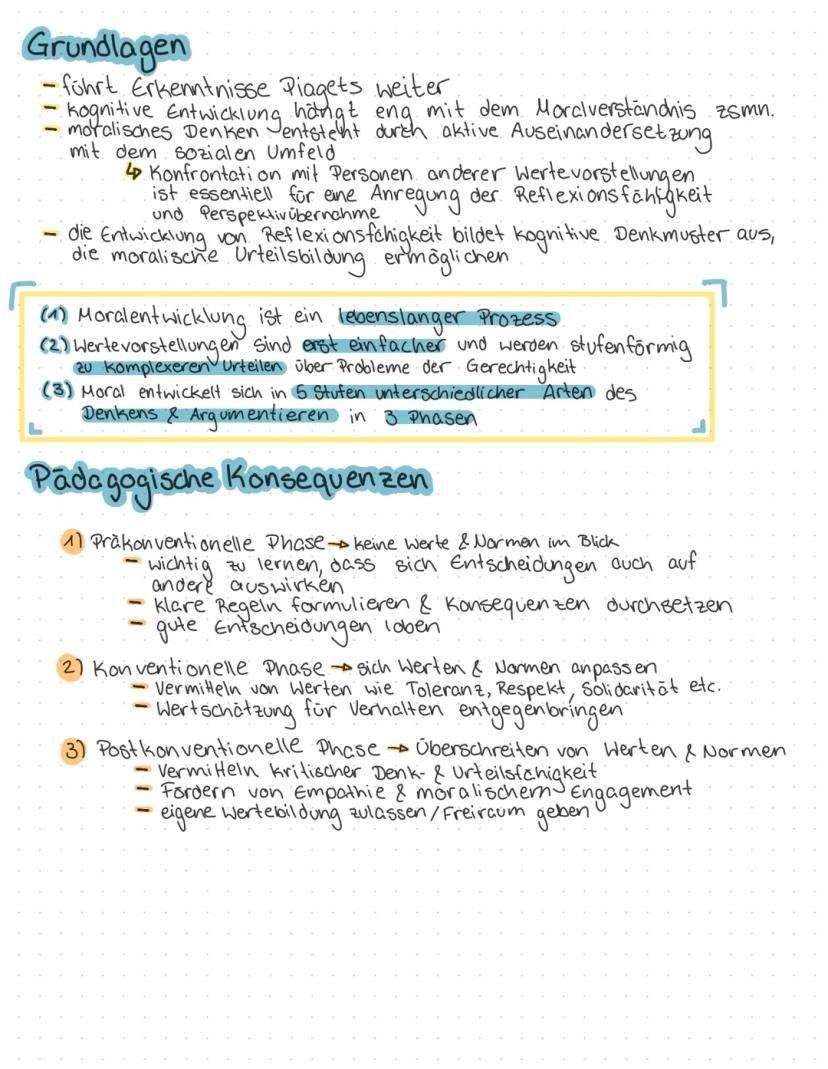 Grundlagen
- führt Erkenntnisse Piagets weiter
- kognitive Entwicklung hängt eng mit dem Moralverständnis zsmn.
- moralisches Denken entsteht durch aktive Auseinandersetzung
mit dem sozialen Umfeld
↳ Konfrontation mit Personen anderer Wertevorstellungen
ist essentiell für eine Anregung der Reflexionsfähigkeit
und Perspektivübernahme
- die Entwicklung von Reflexionsfähigkeit bildet kognitive Denkmuster aus,
die moralische Urteilsbildung ermöglichen
(1) Moralentwicklung ist ein lebenslanger Prozess
(2) Wertevorstellungen sind erst einfacher und werden stufenförmig
zu komplexeren Urteilen über Probleme der Gerechtigkeit
(3) Moral entwickelt sich in 6 Stufen unterschiedlicher Arten des
Denkens & Argumentieren in 3 Phasen
Pädagogische Konsequenzen
1) Präkonventionelle Phase → keine Werte & Normen im Blick
- wichtig zu lernen, dass sich Entscheidungen auch auf
andere auswirken
- klare Regeln formulieren & Konsequenzen durchsetzen
- gute Entscheidungen loben
2) Konventionelle Phase → sich Werten & Normen anpassen
- Vermitteln von Werten wie Toleranz, Respekt, Solidarität etc.
- Wertschätzung für Verhalten entgegenbringen
3) Postkonventionelle Phase → Überschreiten von Werten & Normen
- Vermitteln kritischer Denk- & Urteilsfähigkeit
- Fördern von Empathie & moralischem Engagement
- eigene Wertebildung zulassen / Freiraum geben